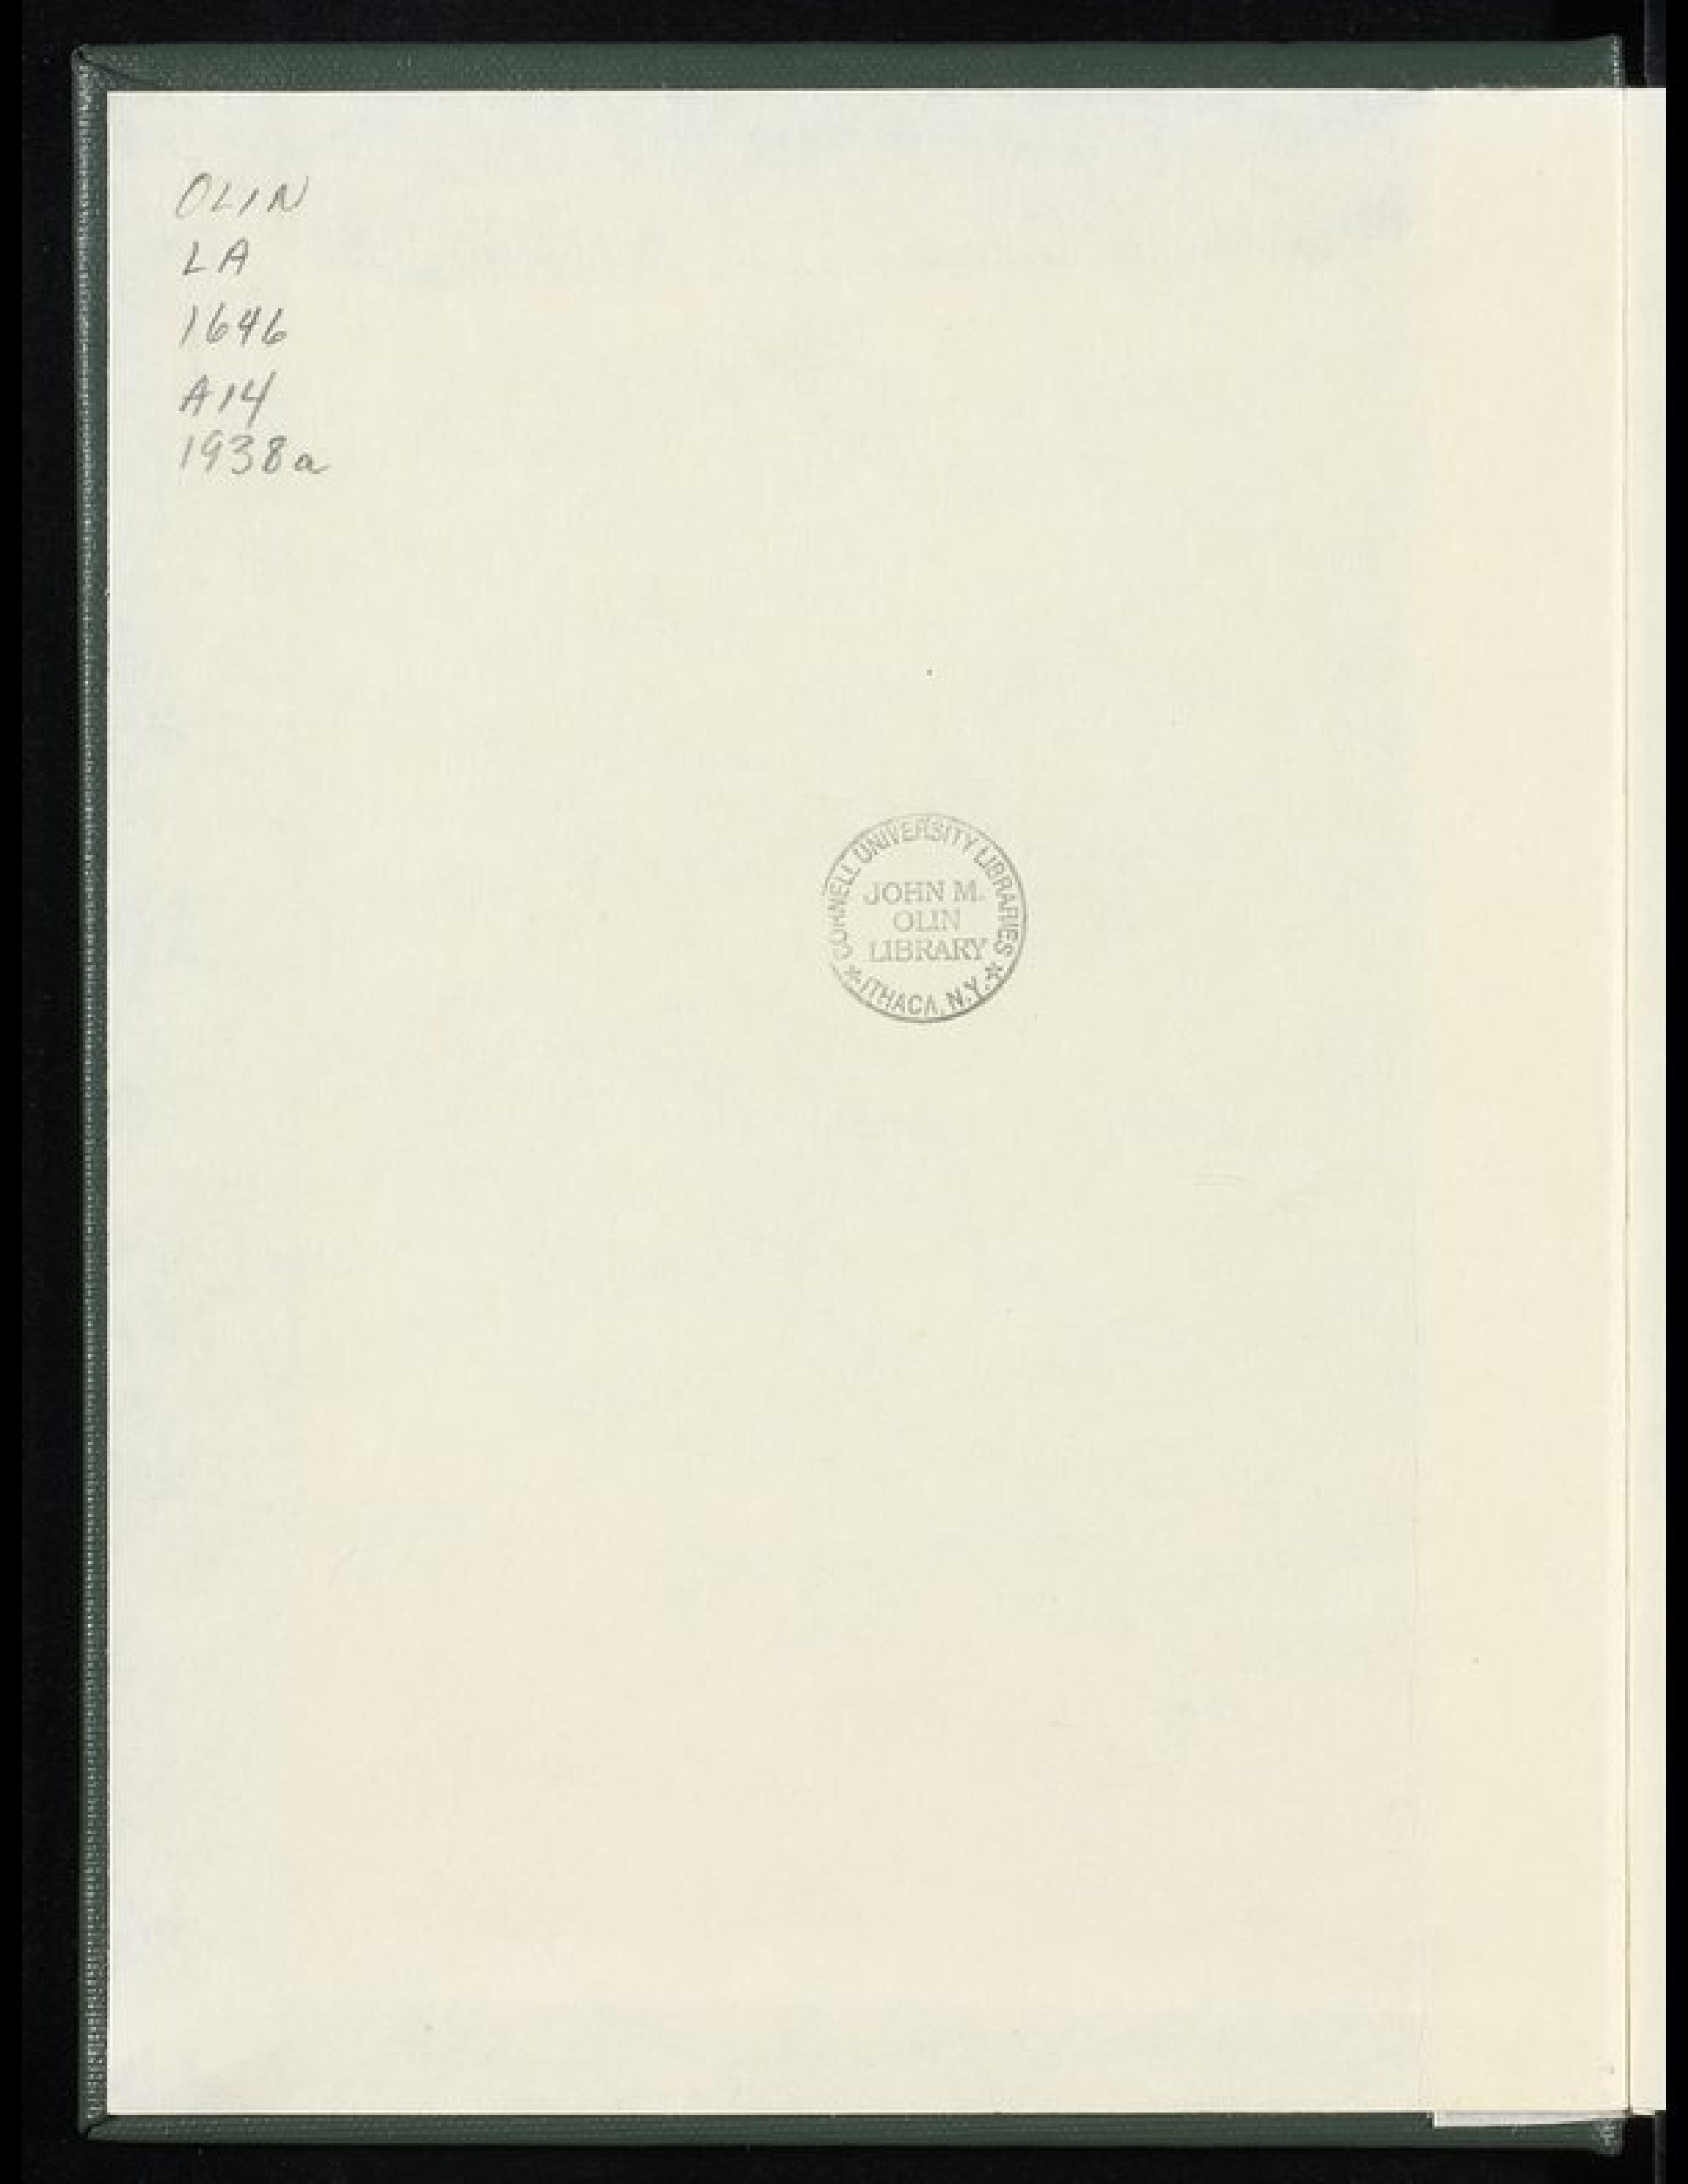 OLIN
LA
1646
A14
1938a
CORNELL UNIVERSITY LIBRARIES
JOHN M.
OLIN
LIBRARY
* ITHACA, N.Y. *